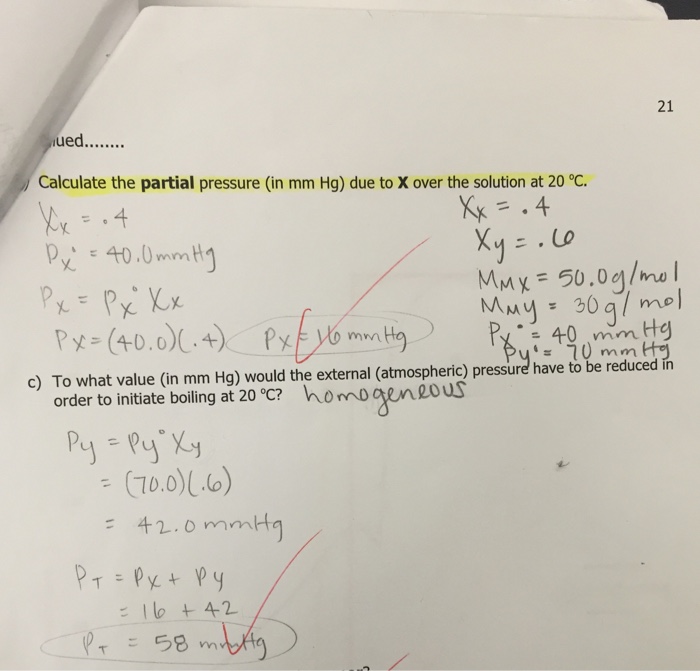 21
ued........
Calculate the partial pressure (in mm Hg) due to X over the solution at 20 °C.
Xx = .4
Px° = 40.0mmHg
Px = Px° Xx
Px=(40.0)(.4) Px = 16 mmHg
Xx = .4
Xy = .6
MMx = 50.0g/mol
MMy = 30g/mol
Px° = 40 mmHg
Py° = 70 mmHg
c) To what value (in mm Hg) would the external (atmospheric) pressure have to be reduced in
order to initiate boiling at 20 °C? homogeneous
Py = Py° Xy
= (70.0)(.6)
= 42.0 mmHg
PT = Px + Py
= 16 + 42
PT = 58 mmHg